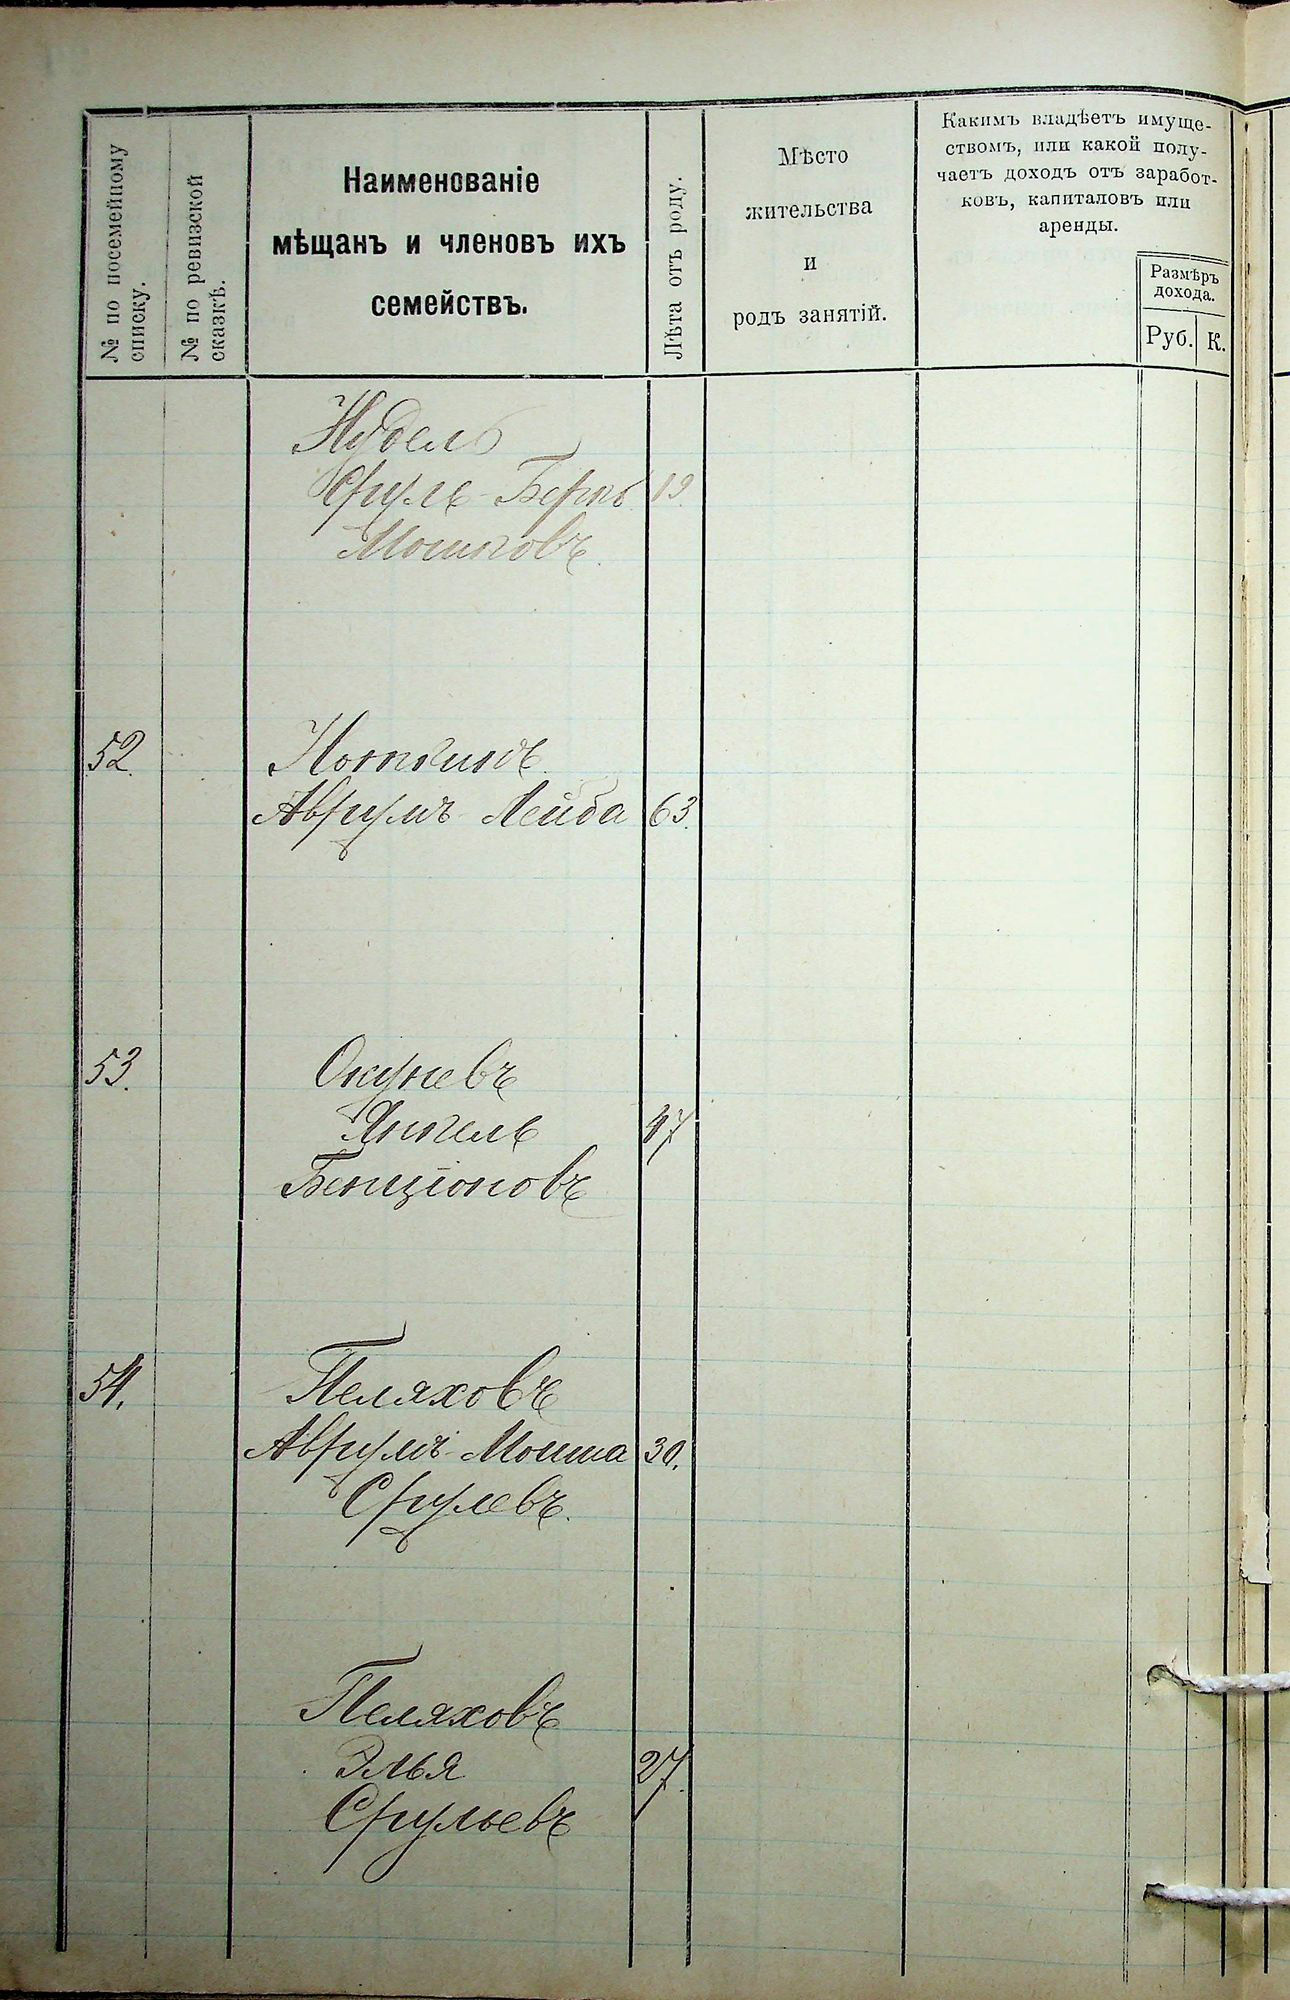 № по посемейному
списку.
№ по ревизской
сказкѣ.
Наименованіе
мѣщанъ и членовъ ихъ
семействъ.
Лѣта отъ роду.
Мѣсто
жительства
и
родъ занятій.
Какимъ владѣетъ имуще-
ствомъ, или какой полу-
чаетъ доходъ отъ заработ-
ковъ, капиталовъ или
аренды.
Размѣръ
дохода.
Руб. К.
Нудель
Сруль-Беръ 19
Мошковъ
52. Ноткинъ
Аврумъ-Лейба 63.
53. Окуневъ
Янкель 47
Бенціоновъ
54. Пеляховъ
Аврумъ-Мошка 30.
Срулевъ.
Пеляховъ
Элья 27.
Срульевъ